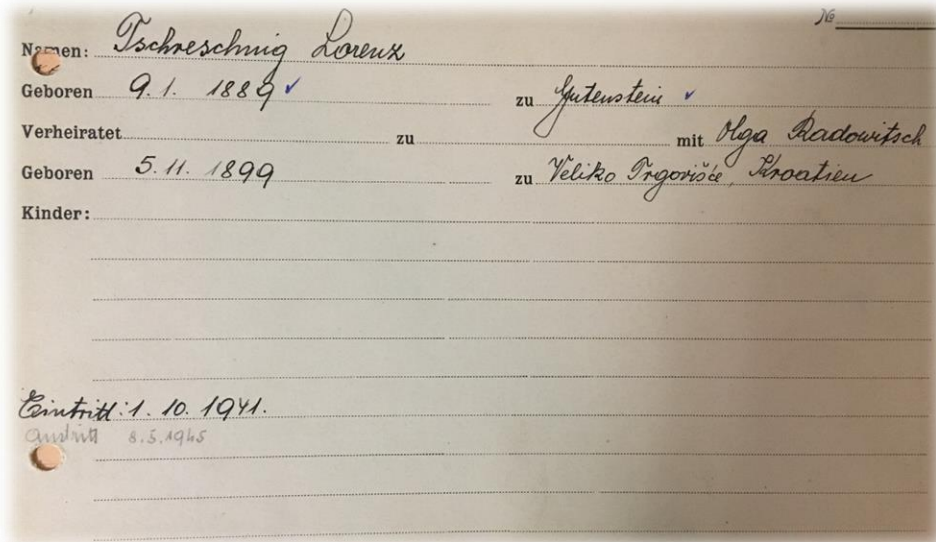 №
Namen: Tschreschnig Lorenz
Geboren 9.1. 1889 ✓ zu Gutenstein ✓
Verheiratet zu mit Olga Radowitsch
Geboren 5.11.1899 zu Veliko Trgovišće, Kroatien
Kinder:
Eintritt: 1.10.1941.
Austritt 8.5.1945